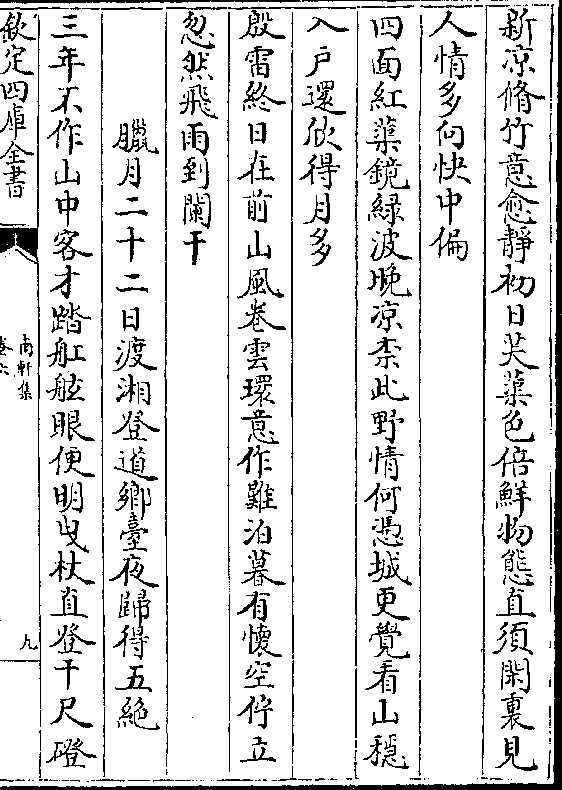 新凉脩竹意愈靜初日芙蕖色倍鮮物態直須閑裏見
人情多向快中偏
四面紅蕖鏡緑波晚凉柰此野情何憑城更覺看山穏
入戶還欣得月多
殷雷終日在前山風卷雲環意作難泊暮有懷空佇立
忽然飛雨到闌干
臘月二十二日渡湘登道鄉臺夜歸得五絶
三年不作山中客才踏舡舷眼便明曵杖直登千尺磴
欽定四庫全書
南軒集
卷六
九